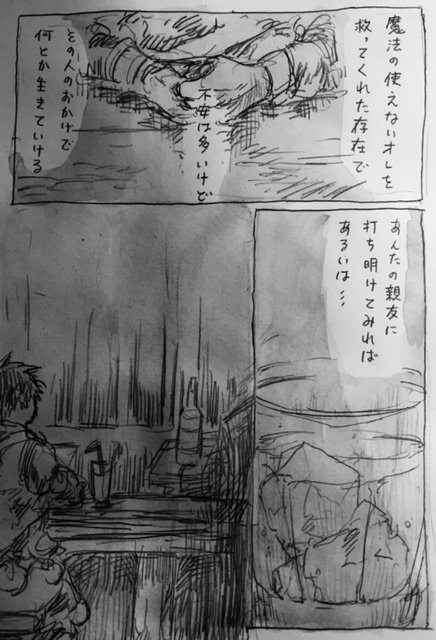 魔法の使えないオレを
救ってくれた存在で
不安は多いけど
その人のおかげで
何とか生きていける
あんたの親友に
打ち明けてみれば
あるいは…